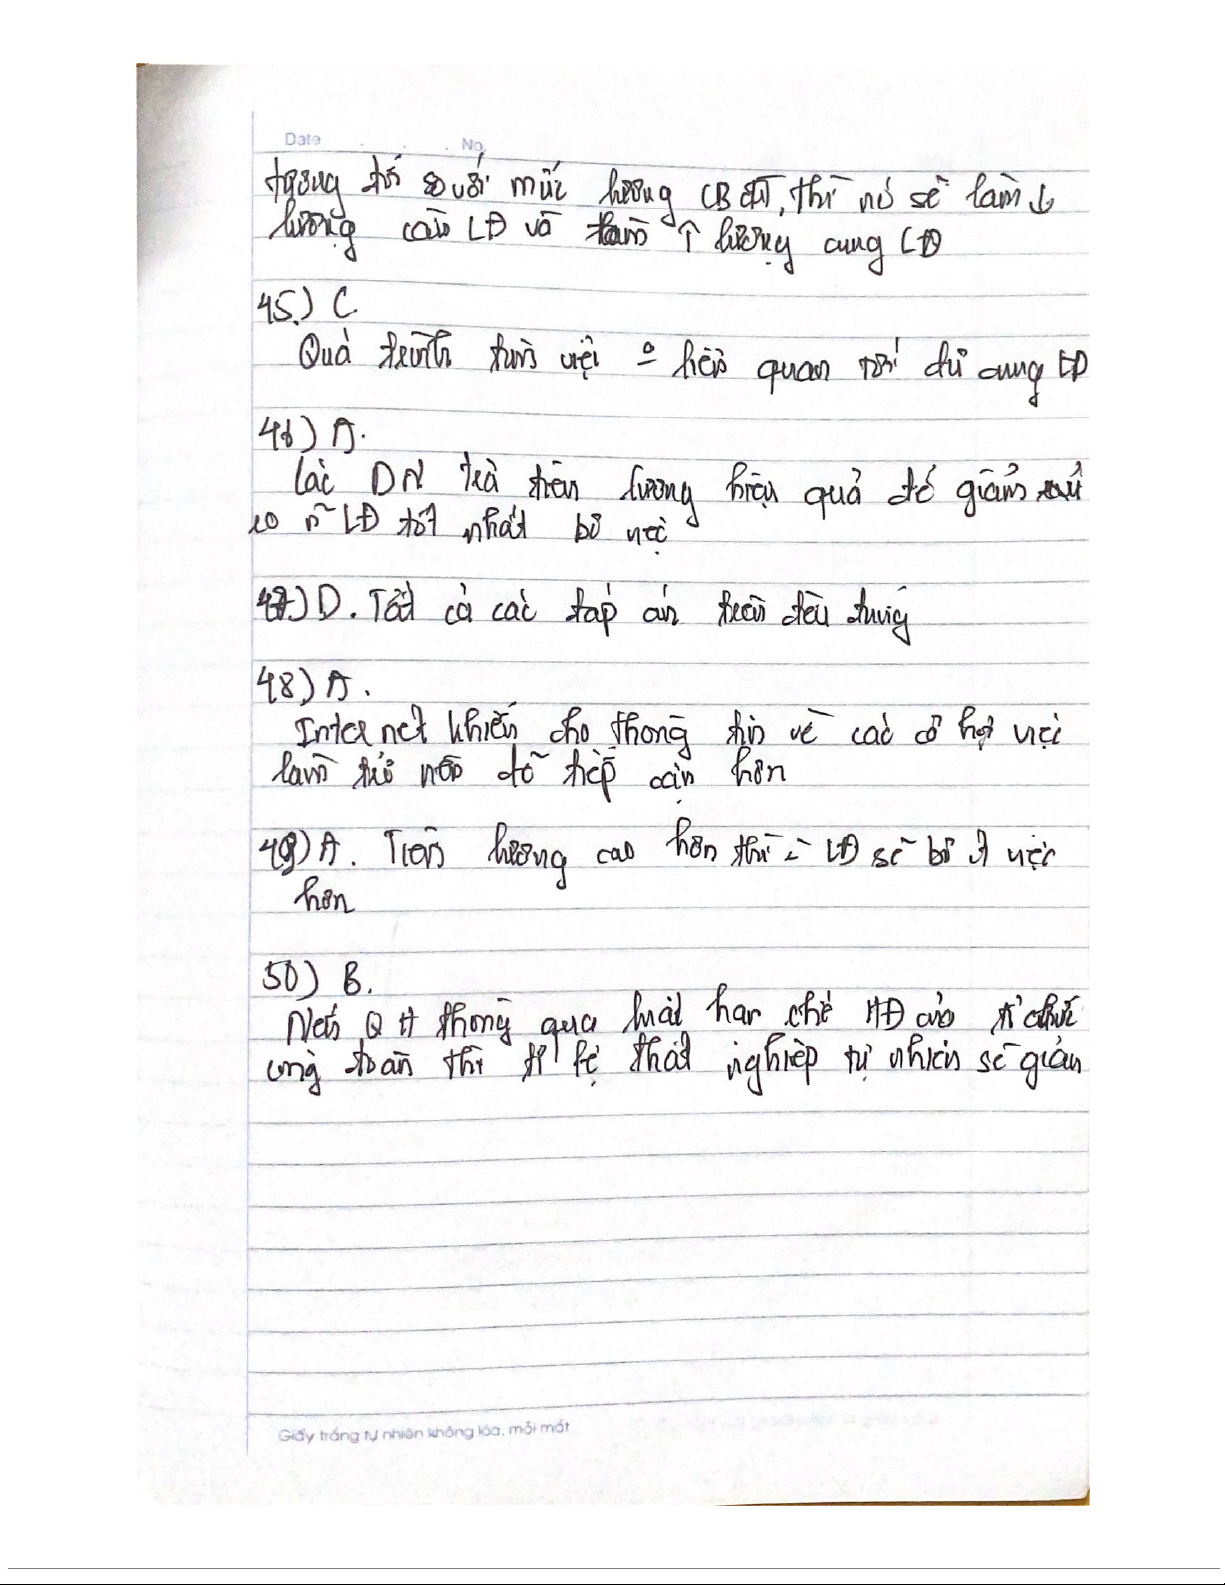 Date . . . No.
tương đối so với mức lương CB ĐT, thì nó sẽ làm ↓
lượng cầu LĐ và làm ↑ lượng cung LĐ
45.) C.
Quá trình tìm việc º liên quan tới dư cung LĐ
46) A.
Các DN trả tiền lương hiệu quả để giảm rủi
ro n~ LĐ tốt nhất bỏ việc
47.) D. Tất cả các đáp án trên đều đúng
48) A.
Internet khiến cho thông tin về các cơ hội việc
làm trở nên dễ tiếp cận hơn
49) A. Tiền lương cao hơn thì LĐ sẽ bỏ ít việc
hơn
50) B.
Nếu QH thông qua luật hạn chế HĐ của tổ chức
công đoàn thì tỉ lệ thất nghiệp tự nhiên sẽ giảm
Giấy trắng tự nhiên không lóa, mỏi mắt